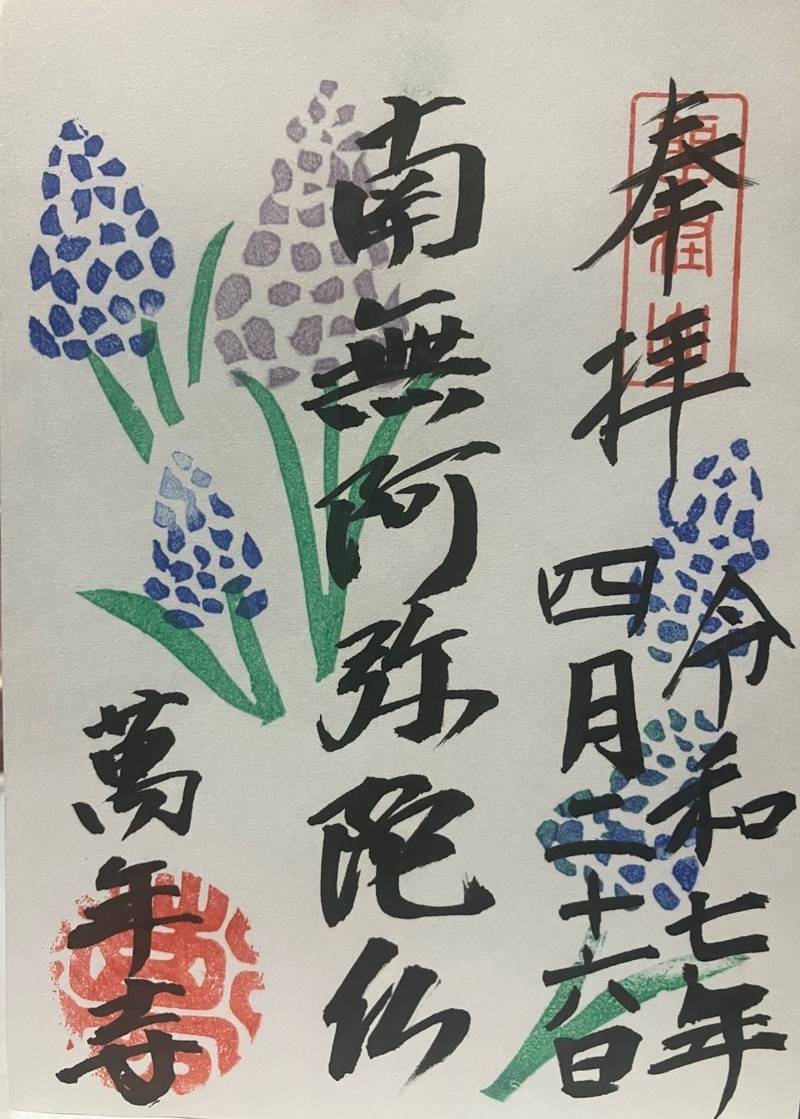 奉拝
令和七年
四月二十六日
南無阿弥陀仏
萬年寺